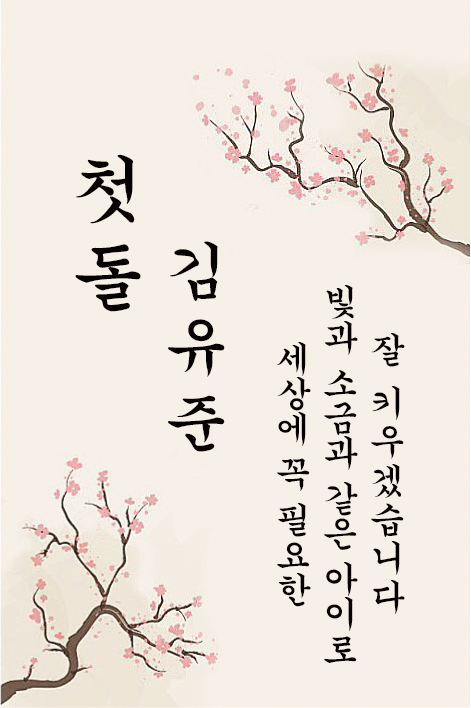 첫돌
김유준
세상에 꼭 필요한
빛과 소금과 같은 아이로
잘 키우겠습니다